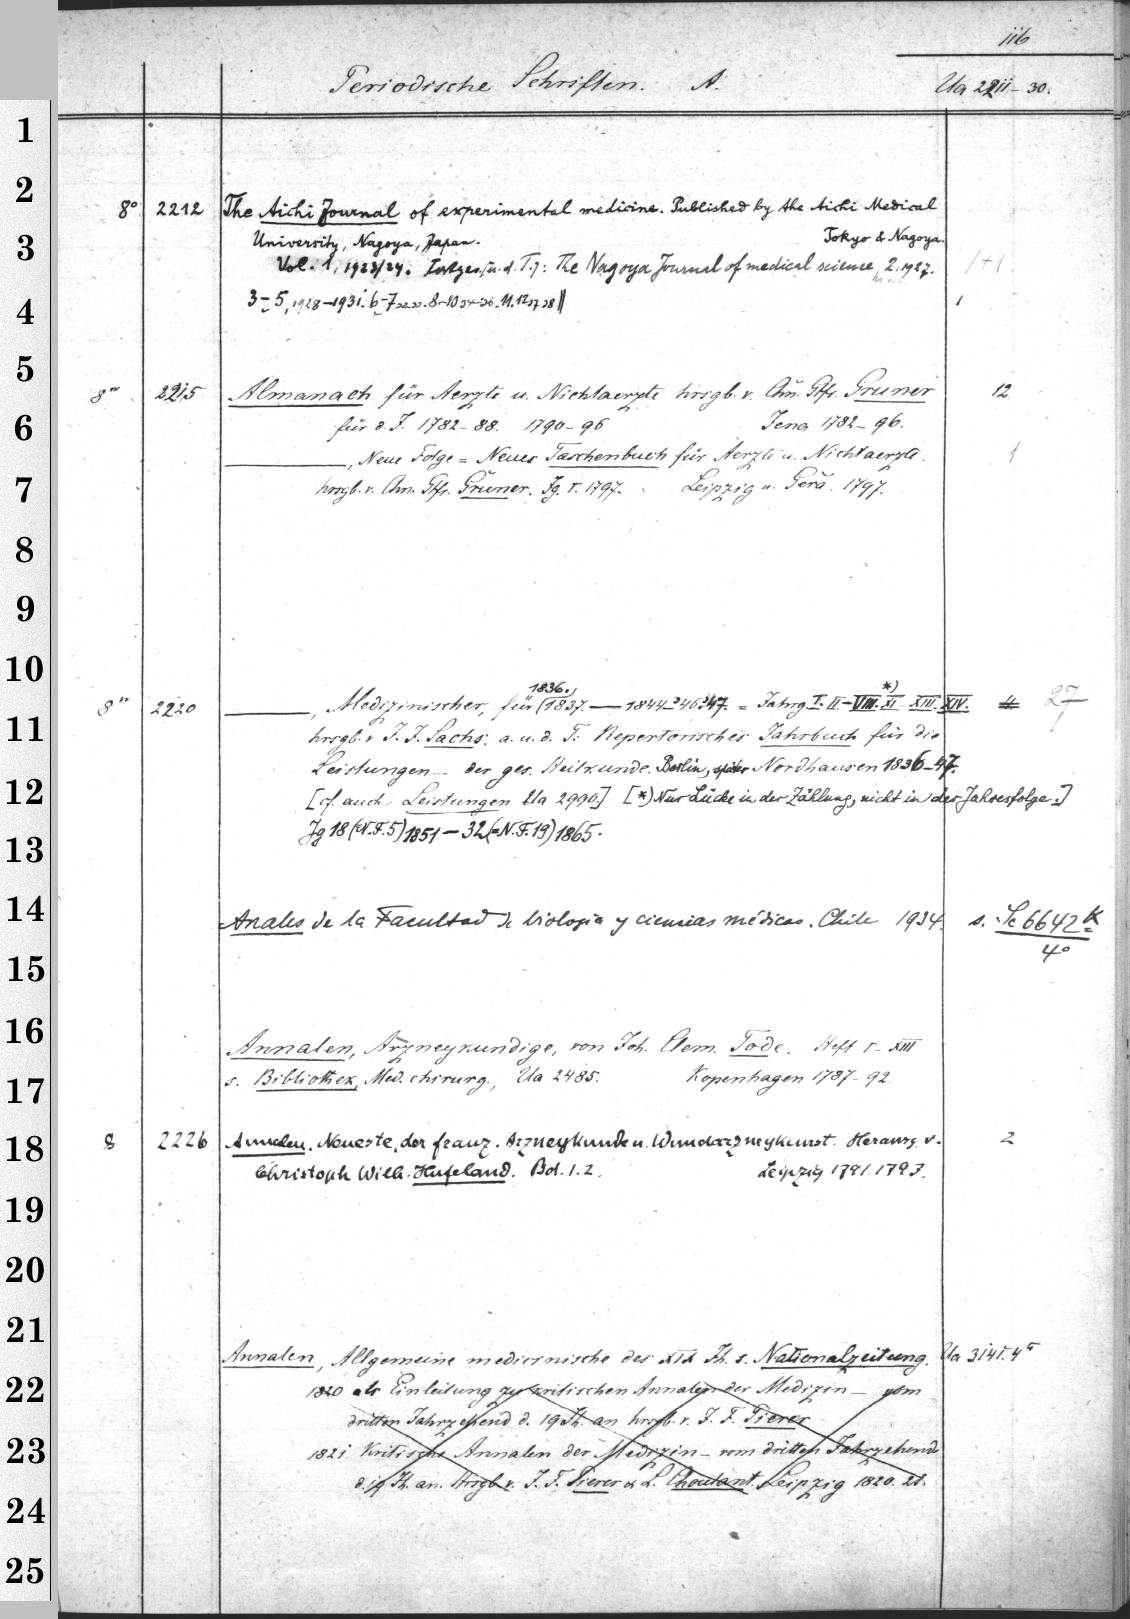 116
Periodische Schriften. A. Ua 2211-30.
8° 2212 The Aichi Journal of experimental medicine. Published by the Aichi Medical
University, Nagoya, Japan. Tokyo & Nagoya.
Vol. 1, 1923/24. Fortges. u. d. T.: The Nagoya Journal of medical science, 2. 1927. 1+1
3-5, 1928-1931. 6-7 32-33. 8-10 34-36. 11. 12 37, 38 ||
8° 2215 Almanach für Aerzte u. Nichtaerzte hrsgb. v. Chn. Gfr. Gruner 12
für d. J. 1782-88. 1790-96 Jena 1782-96.
—, Neue Folge = Neues Taschenbuch für Aerzte u. Nichtaerzte. 1
hrsgb. v. Chn. Gfr. Gruner. Jg. I. 1797. Leipzig u. Gera. 1797.
1836. *)
8° 2220 —, Medizinischer, für (1837.—1844-46. 47. = Jahrg I. II-VIII. XI XIII. XIV. 27
hrsgb. v J. J. Sachs. a. u. d. T: Repertorisches Jahrbuch für die
Leistungen — der ges. Heilkunde. Berlin, später Nordhausen 1836-47.
[cf. auch: Leistungen Ua 2990.] [*) Nur Lücke in der Zählung, nicht in der Jahresfolge.]
Jg 18 (N.F.5) 1851 — 32 (=N.F.19) 1865.
Anales de la Facultad de biologia y ciencias médicas. Chile 1934. s. Sc 6642 K
4°
Annalen, Arzneykundige, von Joh. Clem. Tode. Heft I-XIII
s. Bibliothek, Med. chirurg., Ua 2485. Kopenhagen 1787-92.
8 2226 Annalen. Neueste, der franz. Arzneykunde u. Wundarzneykunst. Herausg. v. 2
Christoph Wilh. Hufeland. Bd. 1. 2. Leipzig 1791. 1793.
Annalen, Allgemeine medicinische des XIX Jh. s. Nationalzeitung. Ua 3145. 4°
1820 als Einleitung zu kritischen Annalen der Medizin — vom
dritten Jahrzehend d. 19 Jh. an hrsgb. v. J. F. Pierer
1821 Kritische Annalen der Medizin — vom dritten Jahrzehend
d. 19 Jh. an. Hrsgb v. J. F. Pierer & L. Choulant. Leipzig 1820. 21.
1
2
3
4
5
6
7
8
9
10
11
12
13
14
15
16
17
18
19
20
21
22
23
24
25